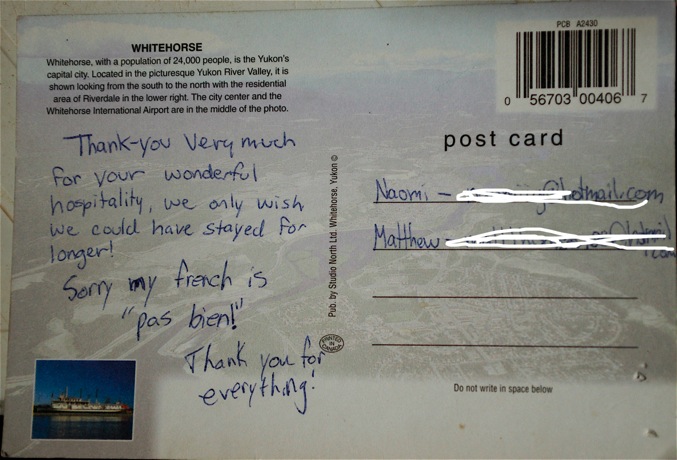 WHITEHORSE
Whitehorse, with a population of 24,000 people, is the Yukon's
capital city. Located in the picturesque Yukon River Valley, it is
shown looking from the south to the north with the residential
area of Riverdale in the lower right. The city center and the
Whitehorse International Airport are in the middle of the photo.
Thank-you Very much
for your wonderful
hospitality, we only wish
we could have stayed for
longer!
Sorry my french is
"pas bien!"
Thank you for
everything!
Pub. by Studio North Ltd. Whitehorse, Yukon ©
PRINTED IN CANADA
PCB A2430
0 56703 00406 7
post card
Naomi - @hotmail.com
Matthew -
Do not write in space below